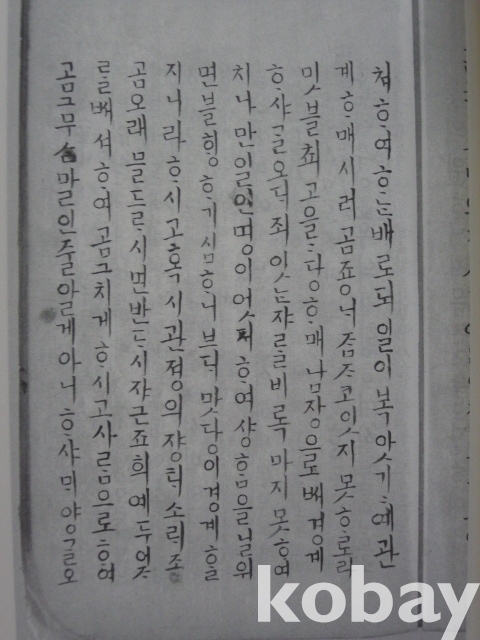 쳐ᄒᆞ여ᄒᆞᄂᆞᆫ배로되일이복앗기예관
계ᄒᆞ매시러곰죵넉줌ᄌᆞ코잇지못ᄒᆞ로라
밋블최고을ᄅᆞᆯ당ᄒᆞ매남쟝으로ᄡᅥ경계
ᄒᆞ샤ᄀᆞᆯ오ᄃᆡ죄잇ᄂᆞᆫ쟈ᄅᆞᆯ비록마지못ᄒᆞ여
치나만일인명이어ᄯᅥᄒᆞ여샹ᄒᆞᆷ을닐위
면블ᄒᆡᆼᄒᆞ기심ᄒᆞ니브ᄃᆡ맛당이경계ᄒᆞᆯ
지니라ᄒᆞ시고혹시관졍의쟝틱소리죠
곰오래들드ᄅᆞ시면반ᄃᆞ시쟈근죠희예두어ᄌᆞ
ᄅᆞᆯᄡᅥ셔ᄒᆞ여곰그치게ᄒᆞ시고사ᄅᆞᆷ으로ᄒᆞ여
곰그무ᄉᆞᆷ말인줄알게아니ᄒᆞ샤ᄆᆡ양ᄀᆞᆯ오
kobay